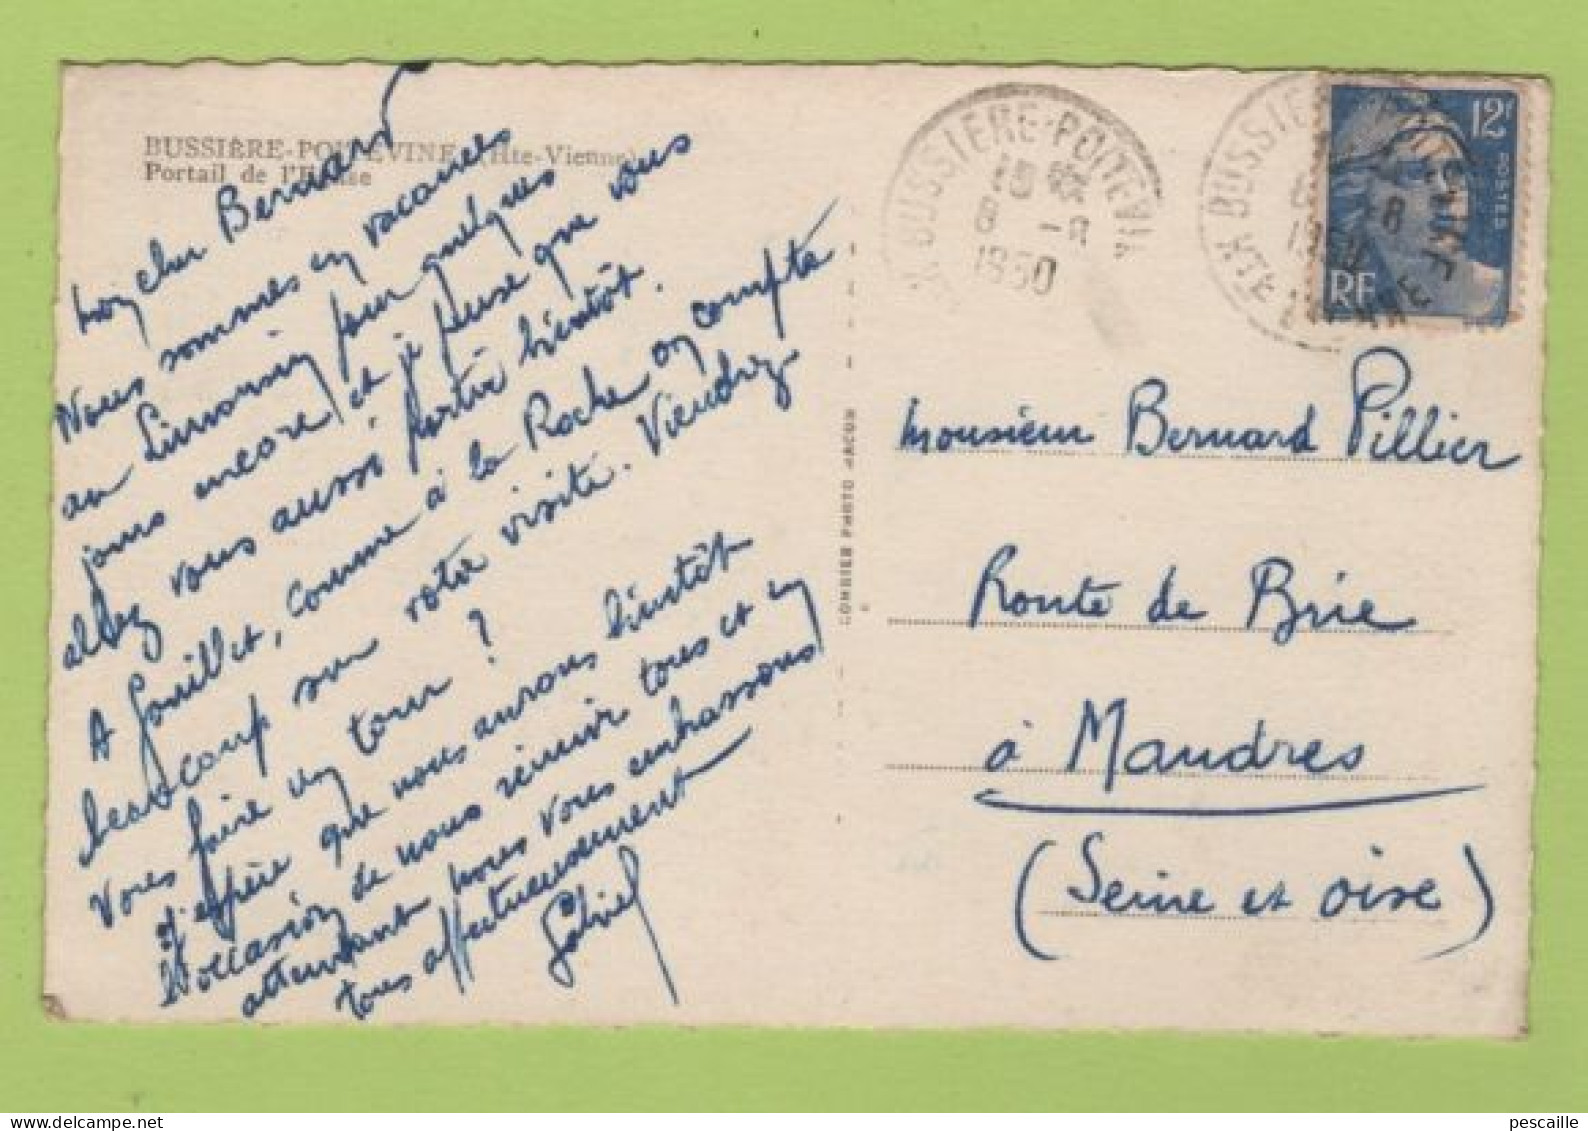 BUSSIÈRE-POITEVINE (Hte-Vienne)
Portail de l'Eglise
Mon cher Bernard
Nous sommes en vacances
au Limousin pour quelques
jours encore, et je pense que vous
allez vous aussi partir bientôt.
A Jouillet, comme à la Roche on compte
beaucoup sur votre visite. Viendrez
vous faire un tour ?
J'espère que nous aurons bientôt
l'occasion de nous réunir tous et en
attendant nous vous embrassons
tous affectueusement
Gabriel
COMBIER PHOTO MACON
BUSSIERE-POITEVINE
8 -8
1950
BUSSIE
HTE VIENNE
12F
POSTES
RF
Monsieur Bernard Pillier
Route de Brie
à Mandres
(Seine et Oise)
pescaille